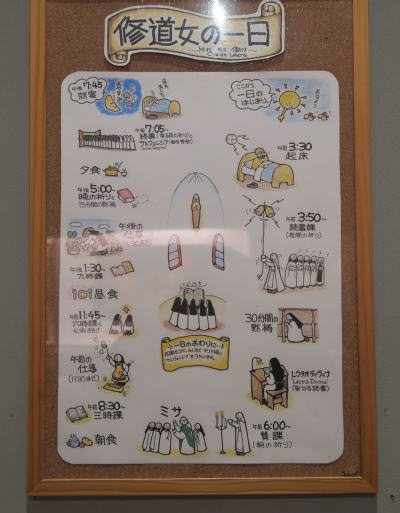 修道女の一日
ここから、
一日の
はじまり
午前3:30
起床
午前3:50~
読書課
(夜間の祈り)
30分間の
黙祷
レクツィオ・ディヴィナ
"Lectio Divina"
(聖なる読書)
午前6:00~
賛課
(朝の祈り)
ミサ
朝食
午前8:30~
三時課
午前の
仕事
(11:30まで)
午前11:45~
六時課と
昼食
午後1:30~
九時課
午後の
仕事
午後5:00~
晩の祈りと
15分間の黙祷
夕食
午後7:05~
終課
午後7:45
就寝
一日のおわりに